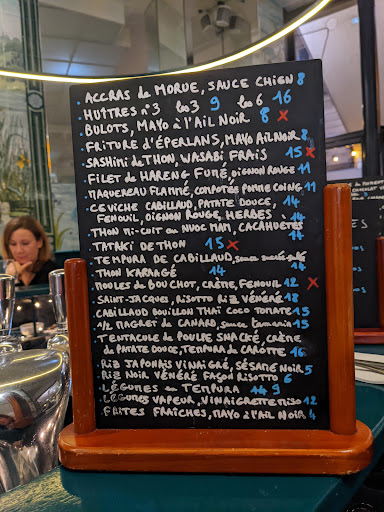 - ACCRAS de MORUE, SAUCE CHIEN 8
- HUÎTRES n°3 les 3 9 les 6 16
- BULOTS, MAYO à l'AIL NOIR 8 x
- FRITURE d'ÉPERLANS, MAYO AIL NOIR 8
- SASHIMI de THON, WASABI FRAIS 15 x
- FILET de HARENG FUMÉ, OIGNON ROUGE 11
- MAQUEREAU FLAMMÉ, COMPOTÉE POMME COING 11
- CEVICHE CABILLAUD, PATATE DOUCE,
FENOUIL, OIGNON ROUGE, HERBES 14
- THON MI-CUIT au NUOC MAM, CACAHUÈTES 14
- TATAKI DE THON 15 x
- TEMPURA DE CABILLAUD, sauce sucrée salée 14
- THON KARAGÉ 14
- MOULES de BOUCHOT, CRÈME, FENOUIL 12 x
- SAINT-JACQUES, RISOTTO RIZ VÉNÉRÉ 18
- CABILLAUD BOUILLON THAÏ COCO TOMATE 15
- 1/2 MAGRET de CANARD, sauce TAMARIN 15
- TENTACULE de POULPE SNACKÉ, CRÈME
de PATATE DOUCE, TEMPURA de CAROTTE 16
- RIZ JAPONAIS VINAIGRÉ, SÉSAME NOIR 5
- RIZ NOIR VÉNÉRÉ FAÇON RISOTTO 6
- LÉGUMES en TEMPURA 9
- LÉGUMES VAPEUR, VINAIGRETTE MISO 12
- FRITES FRAÎCHES, MAYO à l'AIL NOIR 4